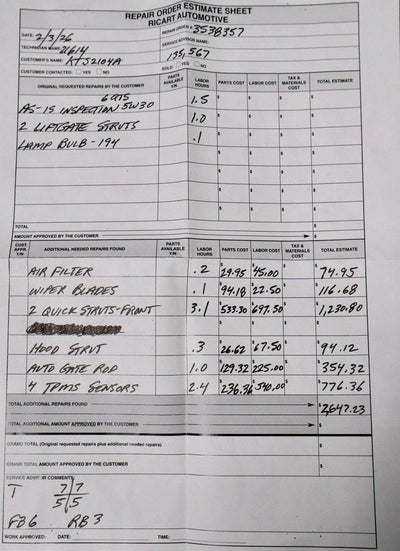 REPAIR ORDER ESTIMATE SHEET
RICART AUTOMOTIVE
DATE: 2/3/26 REPAIR ORDER #: 3538357
TECHNICIAN NAME: 21614 SERVICE ADVISOR NAME:
CUSTOMER'S NAME: 135,567
CUSTOMER CONTACTED: YES NO SOLD: YES NO
ORIGINAL REQUESTED REPAIRS BY THE CUSTOMER PARTS AVAILABLE Y/N LABOR HOURS PARTS COST LABOR COST TAX & MATERIALS COST TOTAL ESTIMATE
6 QTS
AS-IS INSPECTION 5W30 1.5
2 LIFTGATE STRUTS 1.0
LAMP BULB - 194 .1
TOTAL
AMOUNT APPROVED BY THE CUSTOMER
CUST. APPR. Y/N ADDITIONAL NEEDED REPAIRS FOUND PARTS AVAILABLE Y/N LABOR HOURS PARTS COST LABOR COST TAX & MATERIALS COST TOTAL ESTIMATE
AIR FILTER .2 $29.95 $45.00 $74.95
WIPER BLADES .1 $94.18 $22.50 $116.68
2 QUICK STRUTS-FRONT 3.1 $533.30 $697.50 $1,230.80
HOOD STRUT .3 $26.62 $67.50 $94.12
AUTO GATE ROD 1.0 $129.32 $225.00 $354.32
4 TPMS SENSORS 2.4 $236.36 $540.00 $776.36
TOTAL ADDITIONAL REPAIRS FOUND $2,647.23
TOTAL ADDITIONAL AMOUNT APPROVED BY THE CUSTOMER $
GRAND TOTAL (Original requested repairs plus additional needed repairs) $
GRAND TOTAL AMOUNT APPROVED BY THE CUSTOMER $
SERVICE ADVISOR COMMENTS
T 7/7
5/5
FB6 RB3
WORK APPROVED: DATE: TIME: